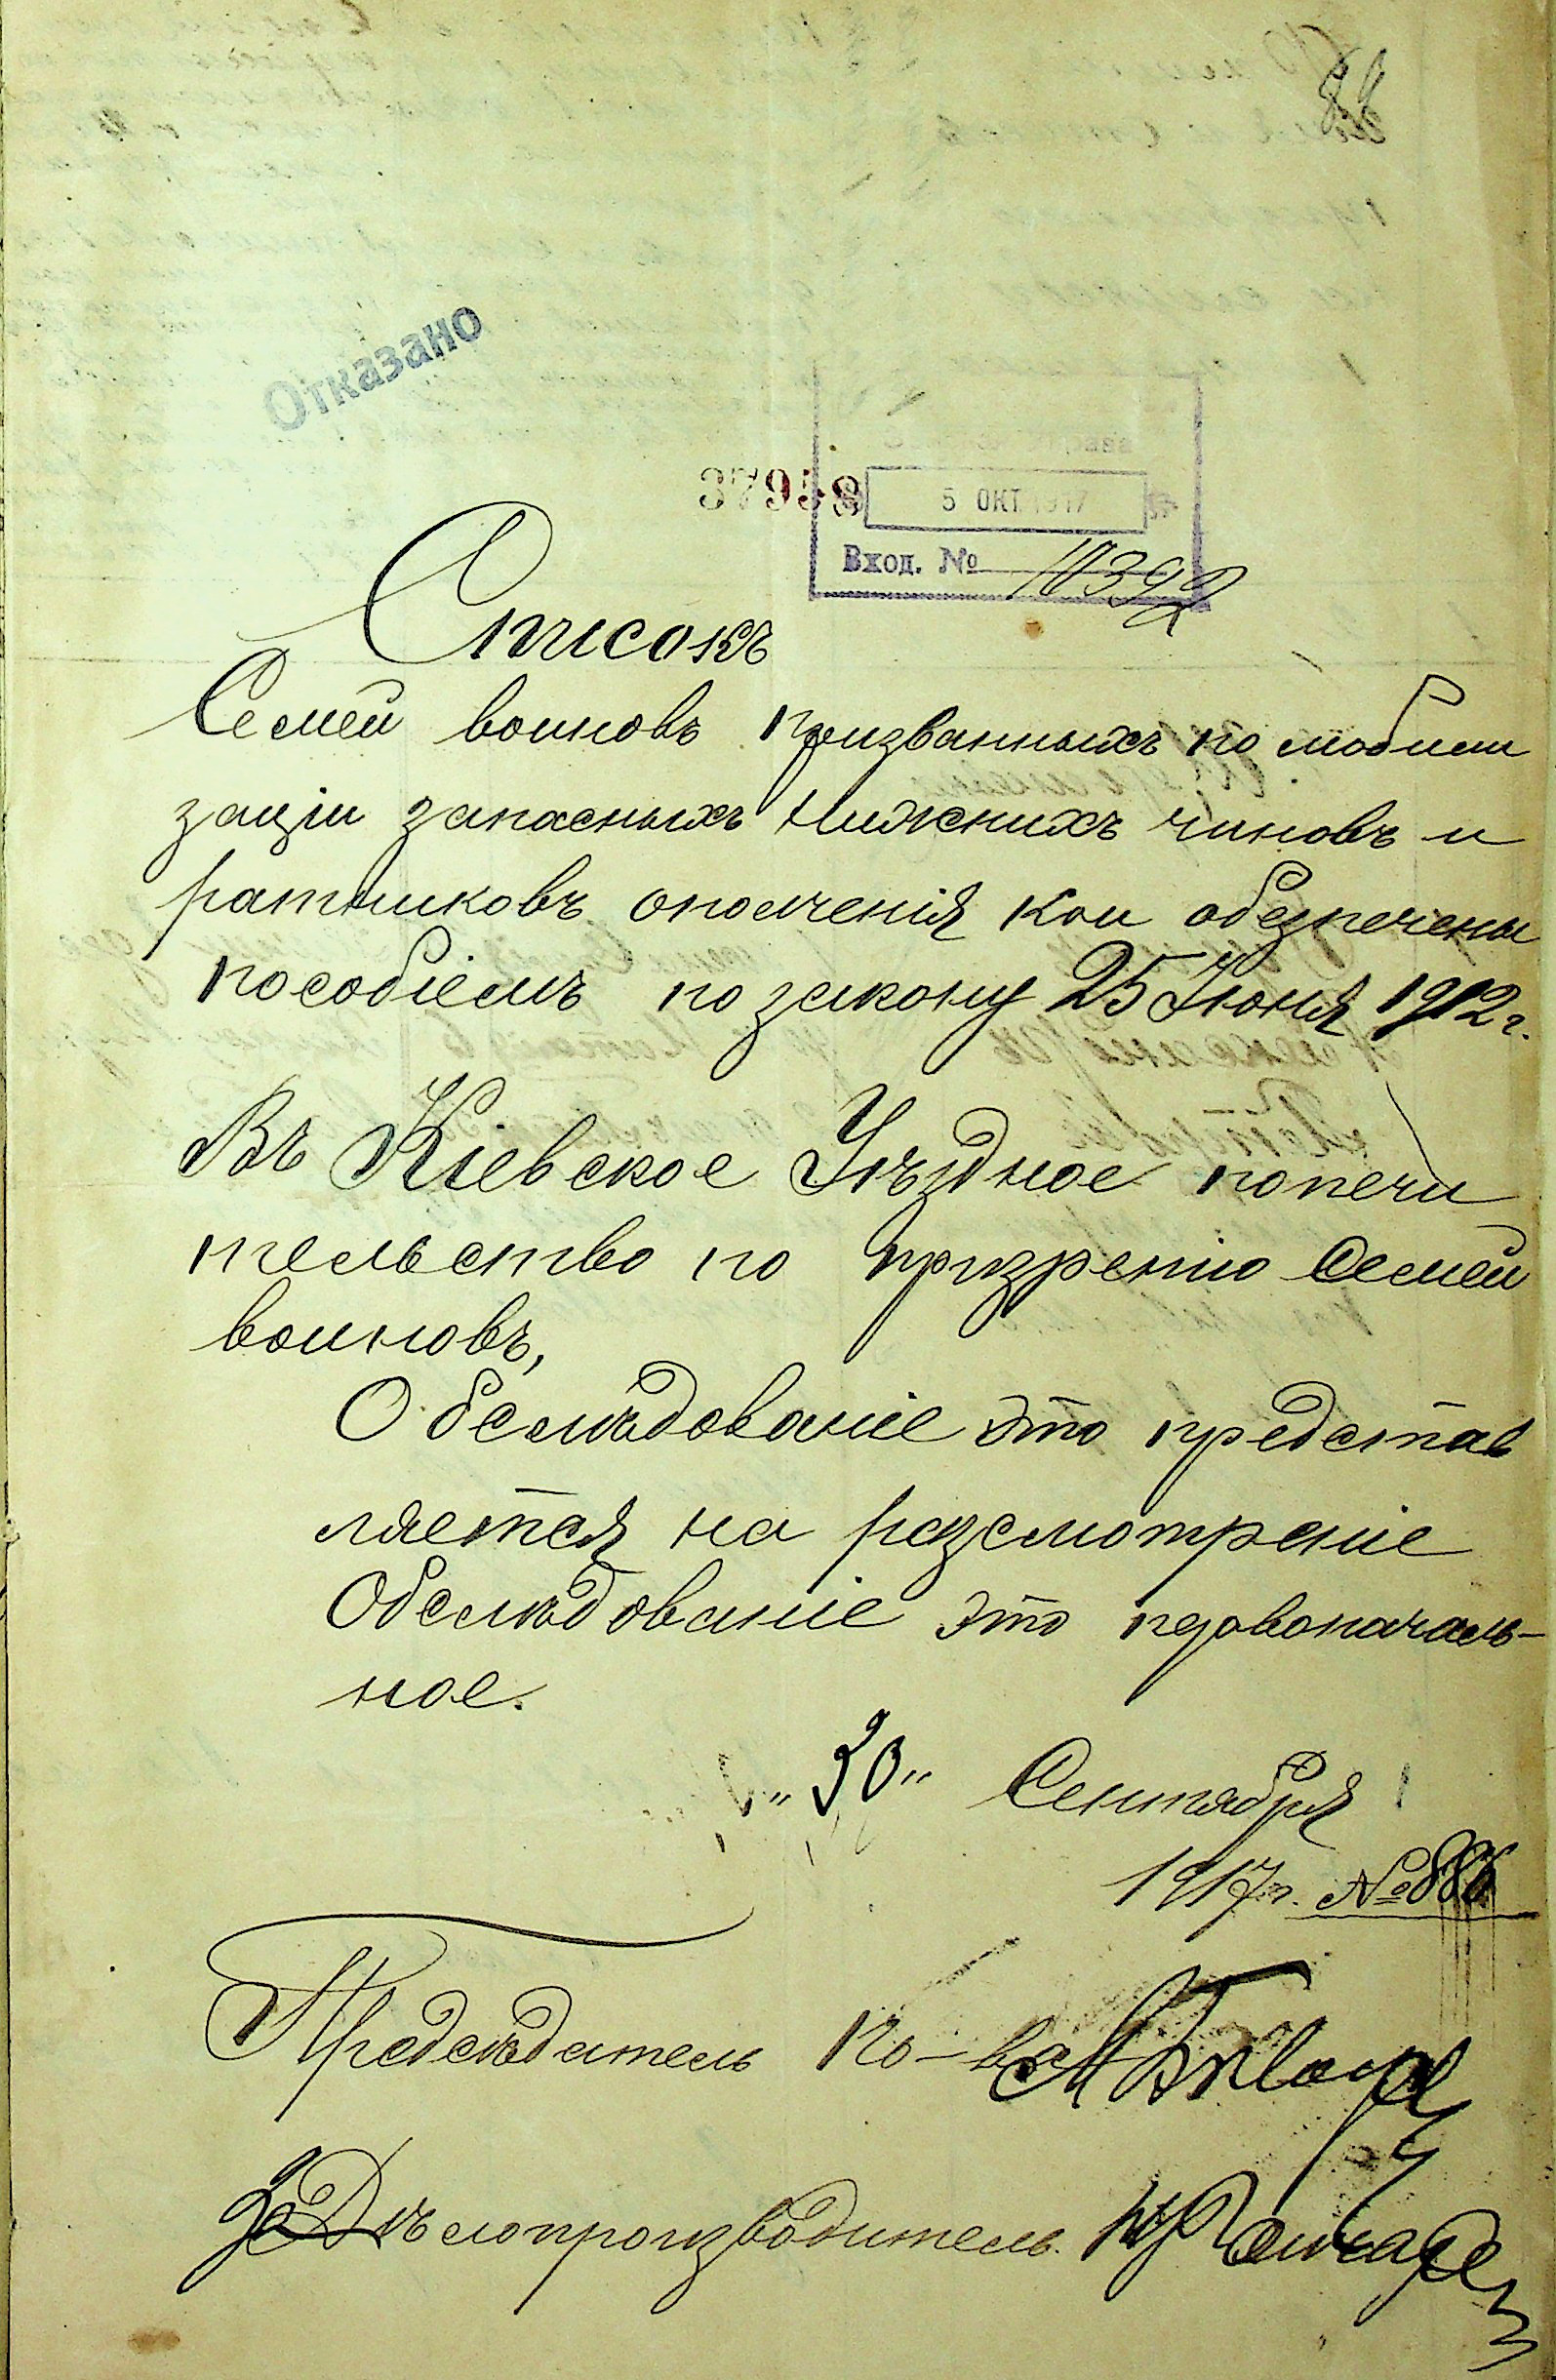 Отказано
37958
5 ОКТ. 1917
Вход. №
Списокъ
Семей воиновъ призванныхъ по мобили
заціи запасныхъ нижнихъ чиновъ и
ратниковъ ополченія кои обезпечены
пособіемъ по закону 25 Июня 1912 г.
Въ Кіевское Уѣздное попечи
тельство по призренію Семей
воиновъ,
Обслѣдованіе это представ
ляется на разсмотреніе
Обслѣдованіе это первоначаль-
ное.
„30„ Сентября
1917 г. № 886
Предсѣдатель по-ва
За Дѣлопроизводитель